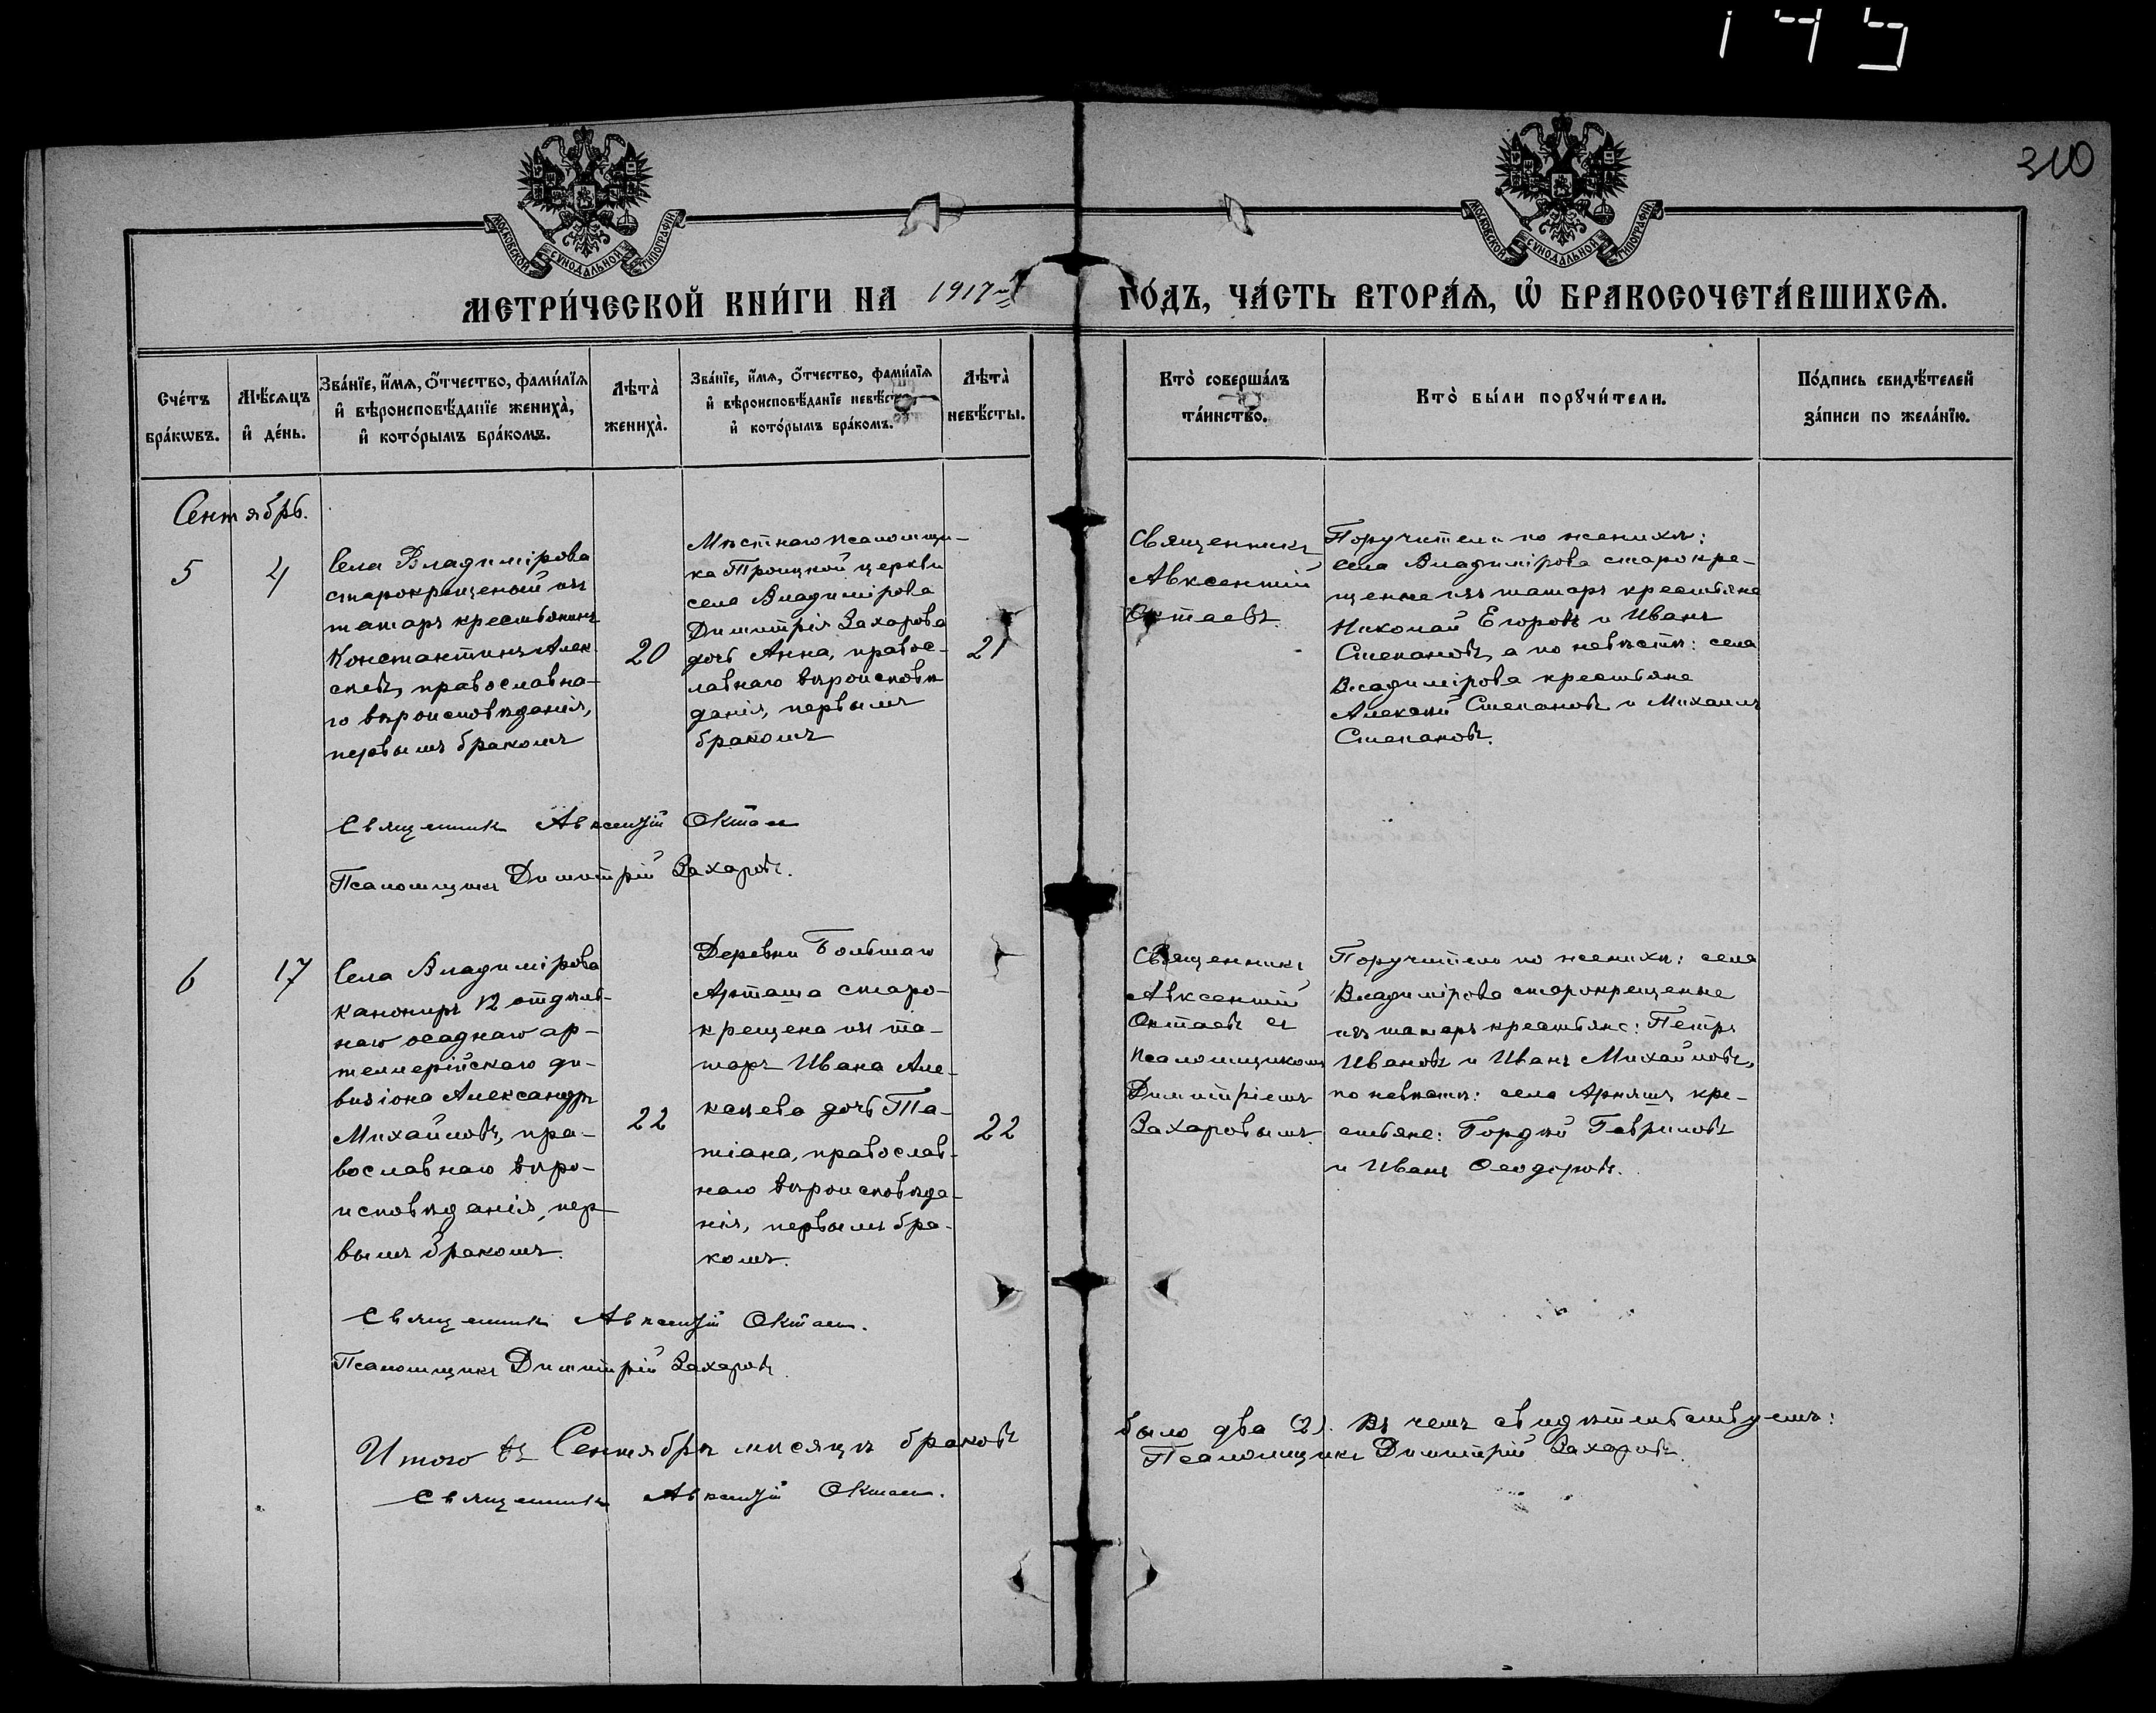 145
310
МОСКОВСКОЙ СѴНОДАЛЬНОЙ ТИПОГРАФІИ
МОСКОВСКОЙ СѴНОДАЛЬНОЙ ТИПОГРАФІИ
МЕТРИ́ЧЕСКОЙ КНИ́ГИ НА 1917 ГО́ДЪ, ЧА́СТЬ ВТОРА́Ѧ, Ѡ҆ БРАКОСОЧЕТА́ВШИХСѦ.
Сче́тъ
бра́кѡвъ.
Мѣ́сѧцъ
и҆ де́нь.
Зва́нїе, и҆́мѧ, ѻ҆́тчество, фами́лїѧ
и҆ вѣроисповѣ́данїе жениха̀,
и҆ кото́рымъ бра́комъ.
Лѣта̀
жениха̀.
Зва́нїе, и҆́мѧ, ѻ҆́тчество, фами́лїѧ
и҆ вѣроисповѣ́данїе невѣ́сты,
и҆ кото́рымъ бра́комъ.
Лѣта̀
невѣ́сты.
Кто̀ соверша́лъ
та́инство.
Кто̀ бы́ли порꙋчи́тели.
По́дпись свидѣ́телей
за́писи по жела́нїю.
Сентябрь.
5
4
Села Владимірова
старокрещеный изъ
татаръ крестьянинъ
Константинъ Алек
сѣевъ, православна-
го вѣроисповѣданія,
первымъ бракомъ
20
Мѣстнаго псаломщи-
ка Троицкой церкви
села Владимірова
Димитрія Захарова
дочь Анна, правос-
лавнаго вѣроисповѣ
данія, первымъ
бракомъ
21
Священникъ
Авксентій
Октаевъ
Поручители по женихѣ:
села Владимірова старокре-
щенные изъ татаръ крестьяне
Николай Егоровъ и Иванъ
Степановъ, а по невѣстѣ: села
Владимірова крестьяне
Алексѣй Степановъ и Михаилъ
Степановъ.
Священникъ Авксентій Октаев
Псаломщикъ Димитрій Захаровъ.
6
17
Села Владимірова
канониръ 12 отдѣль-
наго осаднаго ар-
тиллерійскаго ди-
визіона Александръ
Михайловъ, пра-
вославнаго вѣро-
исповѣданія, пер
вымъ бракомъ.
22
Деревни Большаго
Арташа старо-
крещена изъ та-
таръ Ивана Але-
ксѣева дочь Та-
тіана, православ-
наго вѣроисповѣда-
нія, первымъ бра-
комъ.
22
Священникъ
Авксентій
Октаевъ съ
псаломщикомъ
Димитріемъ
Захаровымъ.
Поручители по женихѣ: села
Владимірова старокрещенные
изъ татаръ крестьяне: Петръ
Ивановъ и Иванъ Михайловъ,
по невѣстѣ: села кре-
стьяне: Гордѣй Гавриловъ
и Иванъ Ѳеодоровъ.
Священникъ Авксентій Октаев.
Псаломщикъ Димитрій Захаровъ.
Итого въ Сентябрѣ мѣсяцѣ браковъ было два (2). Въ чемъ свидѣтельствуемъ:
Священникъ Авксентій Октаев. Псаломщикъ Димитрій Захаровъ.